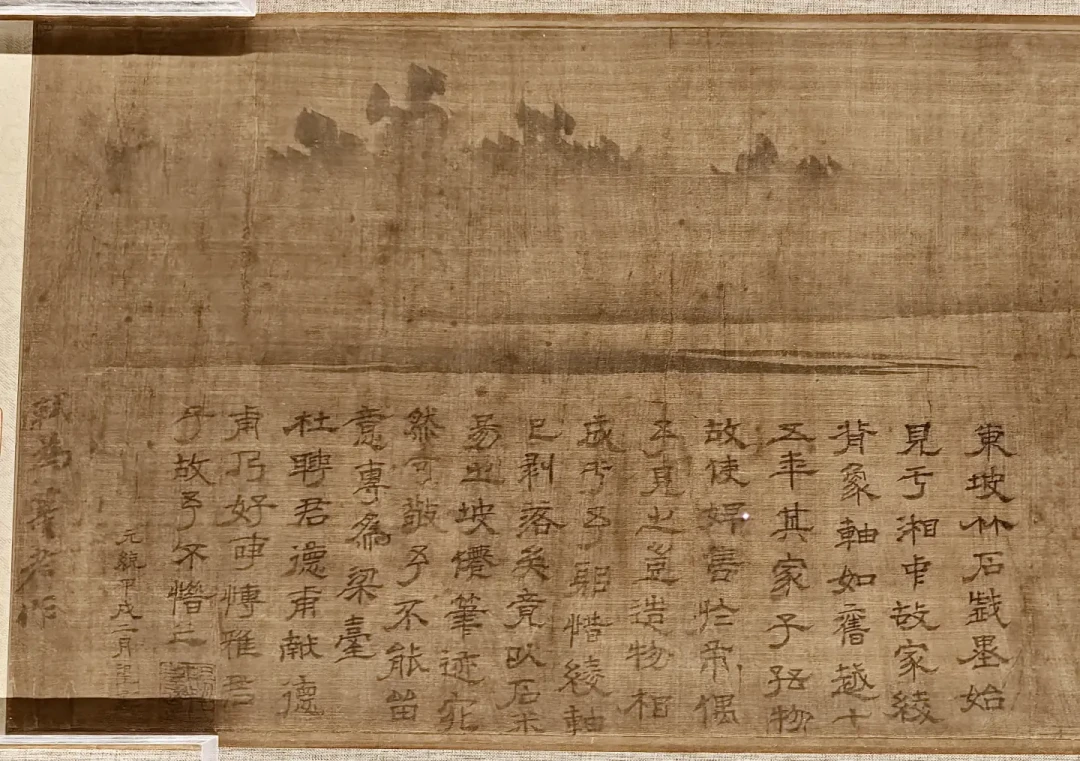 東坡竹石戲墨始
見于湘中故家綾
背象軸如舊越十
五年其家子孫物
故使婦售於市偶
予見之豈造物相
成于予耶惜綾軸
已剝落矣竟以石米
易之坡僊筆迹宛
然可敬予不能留
意專爲梁臺
杜聘君德甫献德
甫乃好事博雅君
子故予不惜之
元統甲戌二月望
軾為莘老作